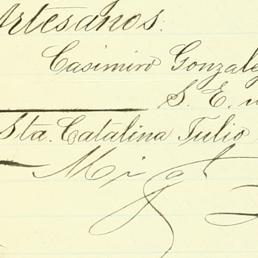 Artesanos.
Casimiro Gonzalez
S. E.
Sta. Catalina Tulio